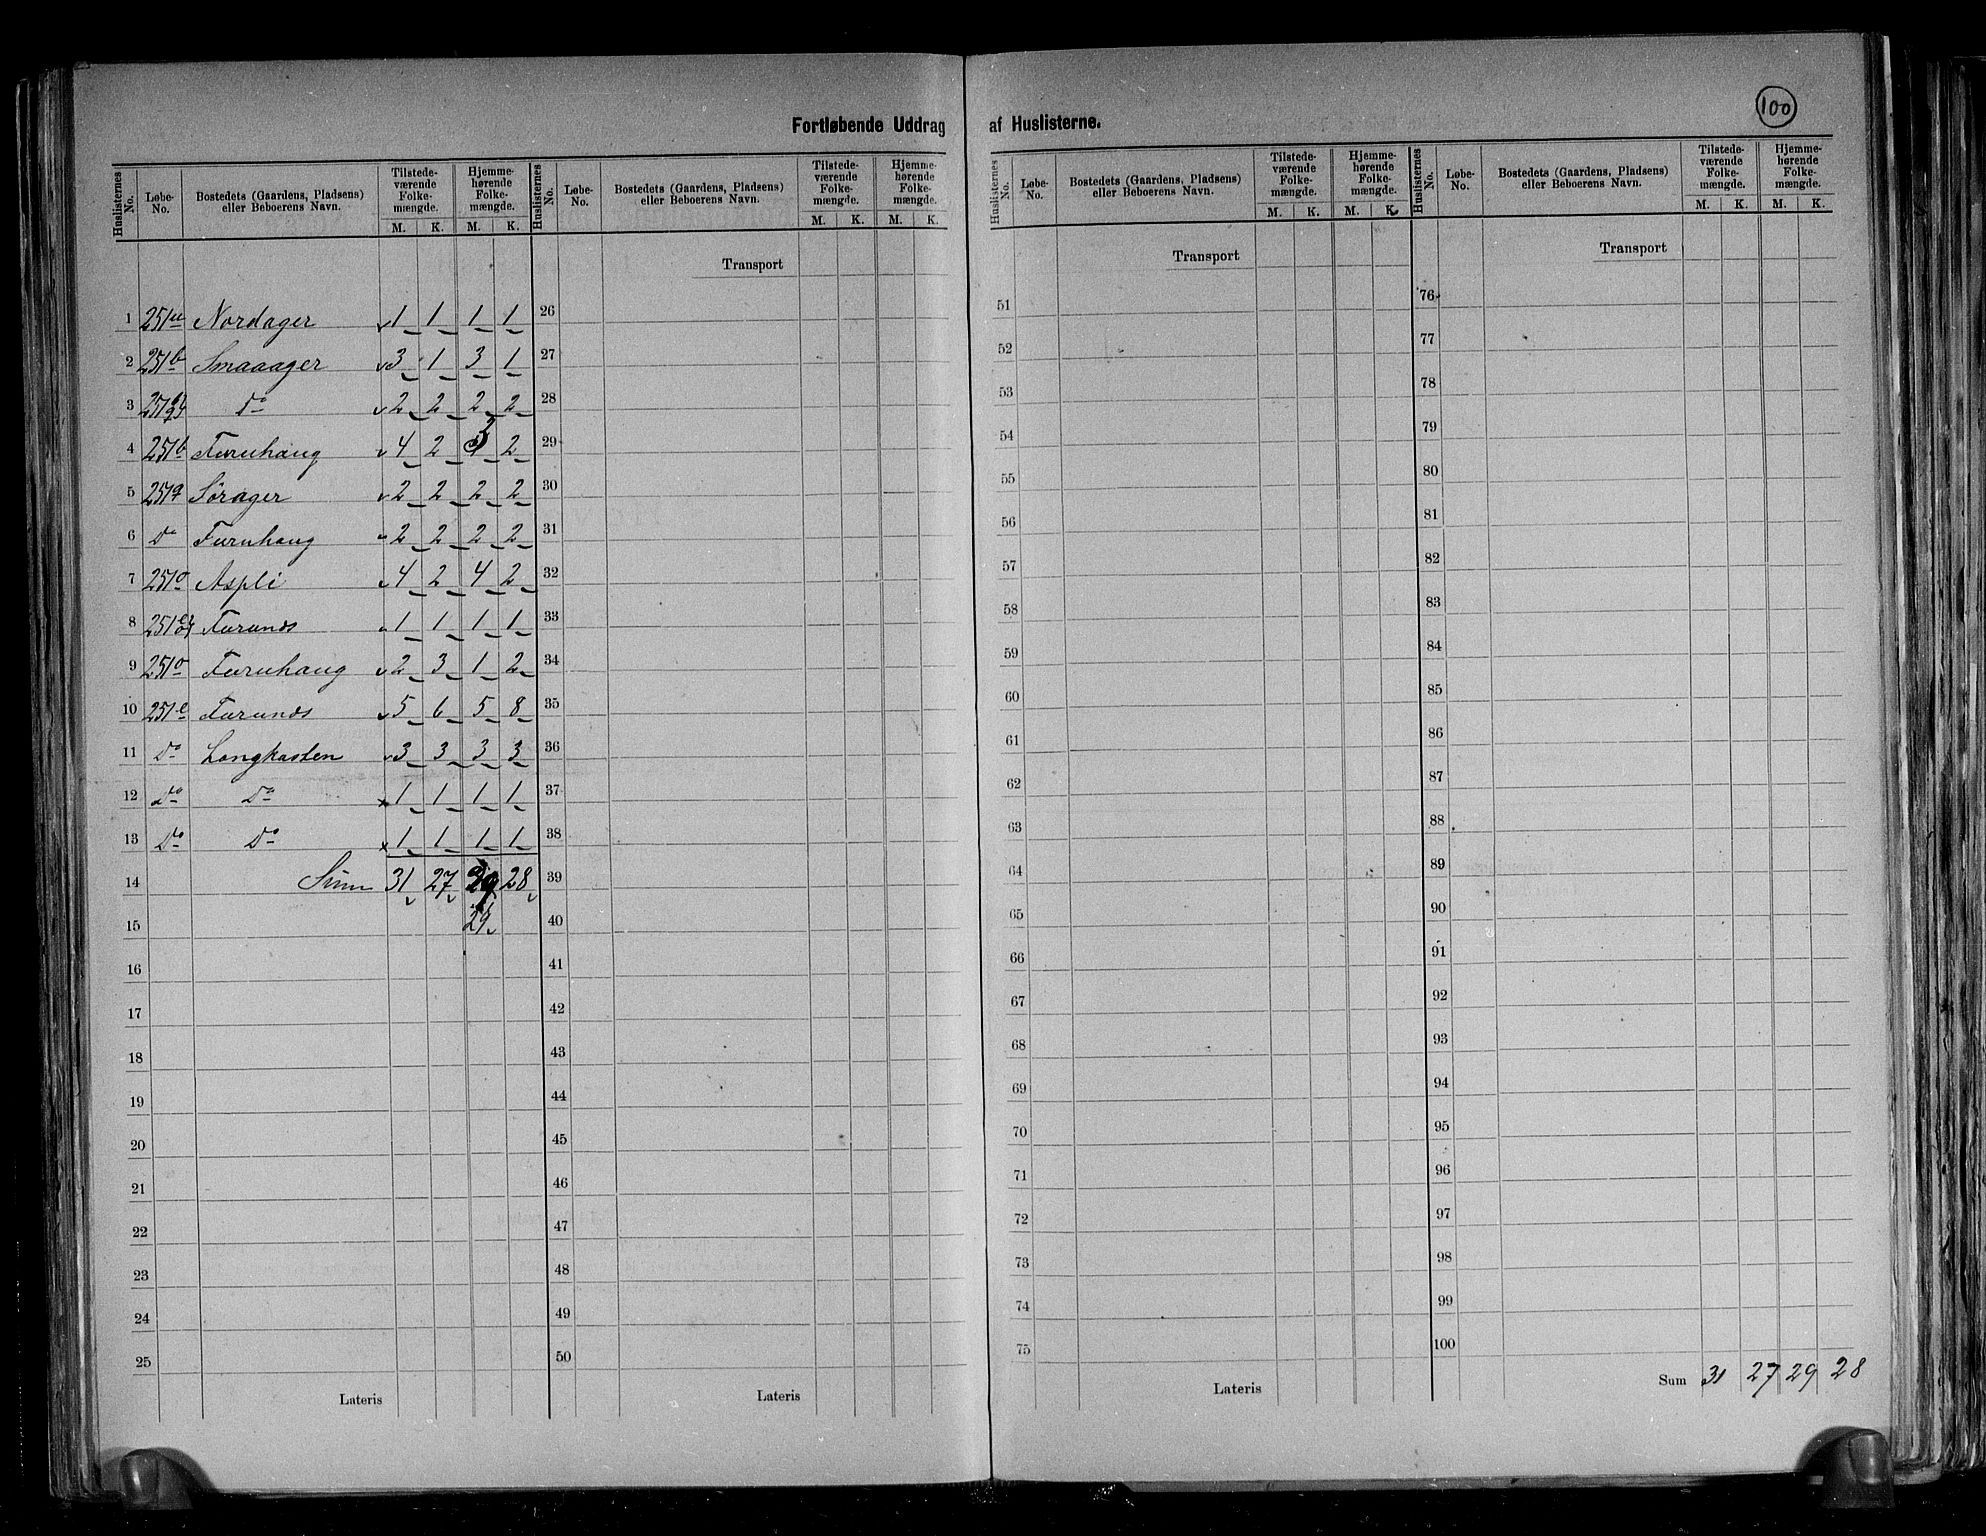 100
Fortløbende Uddrag af Huslisterne.
Huslisternes No. | Løbe-No. | Bostedets (Gaardens, Pladsens) eller Beboerens Navn. | Tilstedeværende Folkemængde. M. K. | Hjemmehørende Folkemængde. M. K.
Huslisternes No. | Løbe-No. | Bostedets (Gaardens, Pladsens) eller Beboerens Navn. | Tilstedeværende Folkemængde. M. K. | Hjemmehørende Folkemængde. M. K.
Huslisternes No. | Løbe-No. | Bostedets (Gaardens, Pladsens) eller Beboerens Navn. | Tilstedeværende Folkemængde. M. K. | Hjemmehørende Folkemængde. M. K.
Huslisternes No. | Løbe-No. | Bostedets (Gaardens, Pladsens) eller Beboerens Navn. | Tilstedeværende Folkemængde. M. K. | Hjemmehørende Folkemængde. M. K.
1 251 Nordager 1 1 1 1
2 251b Smaaager 3 1 3 1
3 251 Do 2 2 2 2
4 251b Furuhaug 4 2 3 2
5 251q Sørager 2 2 2 2
6 Do Furuhaug 2 2 2 2
7 251o Aspli 4 2 4 2
8 251 Furunds 1 1 1 1
9 251o Furuhaug 2 3 1 2
10 251e Furunds 5 6 5 8
11 Do Langkasten 3 3 3 3
12 Do Do 1 1 1 1
13 Do Do 1 1 1 1
14 Sum 31 27 29 28
15 29
16
17
18
19
20
21
22
23
24
25
Lateris
Transport
26
27
28
29
30
31
32
33
34
35
36
37
38
39
40
41
42
43
44
45
46
47
48
49
50
Lateris
Transport
51
52
53
54
55
56
57
58
59
60
61
62
63
64
65
66
67
68
69
70
71
72
73
74
75
Lateris
Transport
76
77
78
79
80
81
82
83
84
85
86
87
88
89
90
91
92
93
94
95
96
97
98
99
100
Sum 31 27 29 28